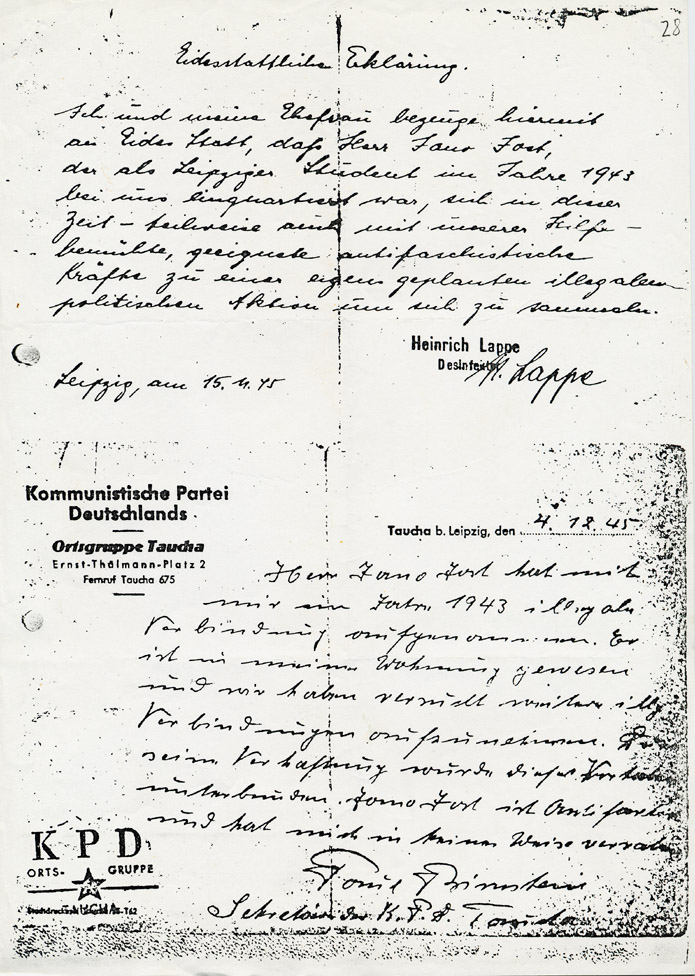 28
Eidesstattliche Erklärung.
Ich und meine Ehefrau bezeuge hiermit
an Eides Statt, daß Herr Jano Fost,
der als Leipziger Student im Jahre 1943
bei uns einquartiert war, sich in dieser
Zeit – teilweise auch mit unserer Hilfe –
bemühte, geeignete antifaschistische
Kräfte zu einer eigens geplanten illegalen
politischen Aktion um sich zu sammeln.
Heinrich Lappe
Desinfektor
H. Lappe
Leipzig, am 15.11.45
Kommunistische Partei
Deutschlands
Ortsgruppe Taucha
Ernst-Thälmann-Platz 2
Fernruf Taucha 675
Taucha b. Leipzig, den 4.12.45
Herr Jano Fost hat mit
mir im Jahre 1943 illegale
Verbindung aufgenommen. Er
ist in meiner Wohnung gewesen
und wir haben versucht weitere
Verbindungen aufzunehmen.
seine Verhaftung wurde dieses
unterbunden. Jano Fost ist
und hat mich in keiner Weise
Sekretär der K.P.D. Taucha
KPD
ORTS- GRUPPE
TAUCHA